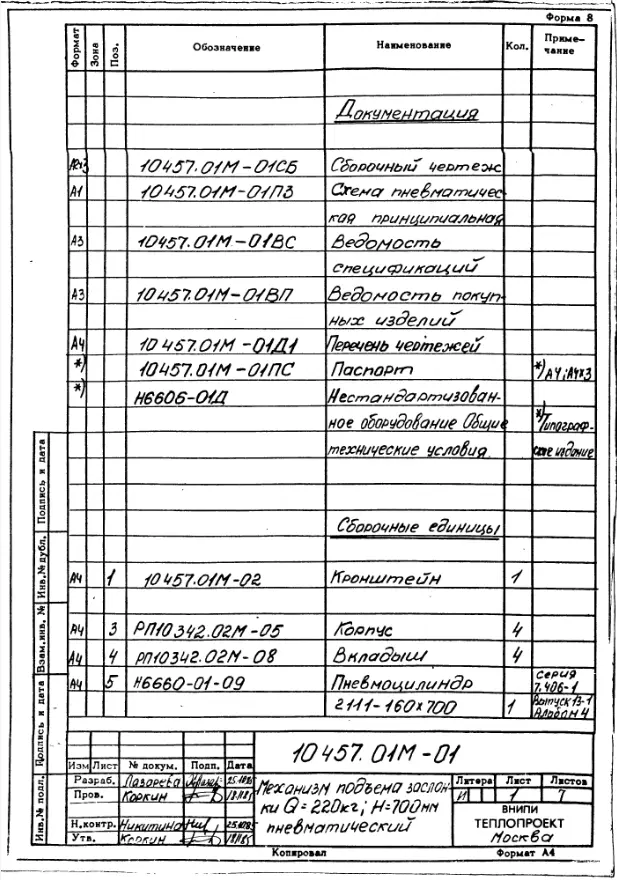 Форма 8
Формат Зона Поз. Обозначение Наименование Кол. Приме-
чание
Документация
10457.01М-01СБ Сборочный чертеж
А1 10457.01М-01ПЗ Схема пневматичес-
кая принципиальная
А3 10457.01М-01ВС Ведомость
спецификаций
А3 10457.01М-01ВП Ведомость покуп-
ных изделий
А4 10457.01М-01Д1 Перечень чертежей
*) 10457.01М-01ПС Паспорт *)А4;А4х3
*) Н6606-01Д Нестандартизован-
ное оборудование Общие *)Типограф-
технические условия. ское издание
Сборочные единицы
А4 1 10457.01М-02 Кронштейн 1
А4 3 РП10342.02М-05 Корпус 4
А4 4 РП10342.02М-08 Вкладыш 4
А4 5 Н6660-01-09 Пневмоцилиндр серия
7.406-1
2111-160х700 1 Выпуск 13-1
Альбом 4
Инв.№ подл. Подпись и дата Взам.инв. № Инв.№ дубл. Подпись и дата
10457.01М-01
Изм Лист № докум. Подп. Дата
Разраб. Лазарева
Пров. Коркин
Н.контр. Никитина
Утв. Коркин
Механизм подъема заслон-
ки Q=220кг; Н=700мм
пневматический
Литера Лист Листов
И 1 7
ВНИПИ
ТЕПЛОПРОЕКТ
Москва
Копировал Формат А4